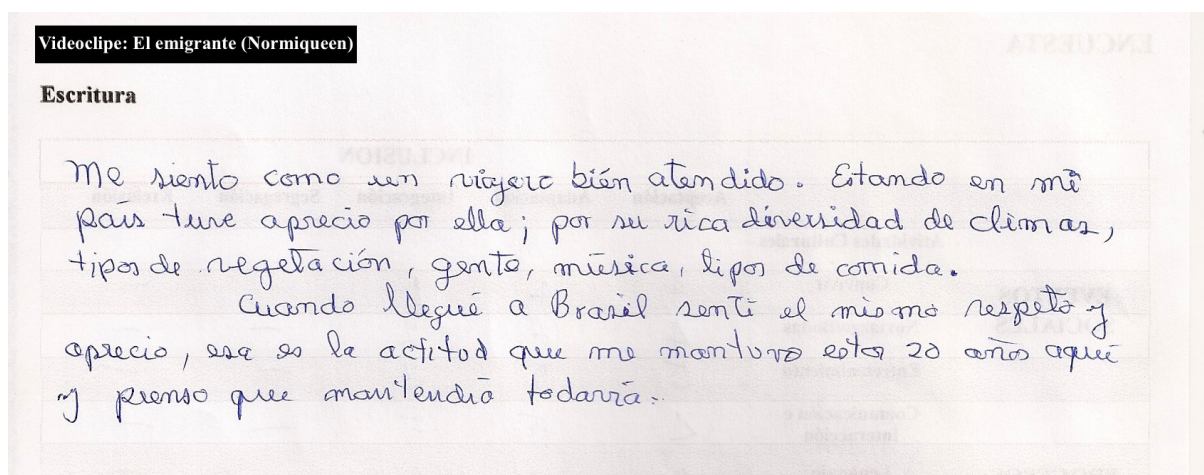 Videoclipe: El emigrante (Normiqueen)
ENCUESTA
Escritura
INCLUSIÓN
Me siento como un viajero bién atendido. Estando en mi
pais tuve aprecio por ella; por su rica diversidad de climas,
tipos de vegetación, gente, música, tipos de comida.
Cuando llegué a Brasil senti el mismo respeto y
aprecio, esa es la actitud que me mantuvo estos 20 años aqui
y pienso que mantendrá todavía.
Comunicación e
Interacción